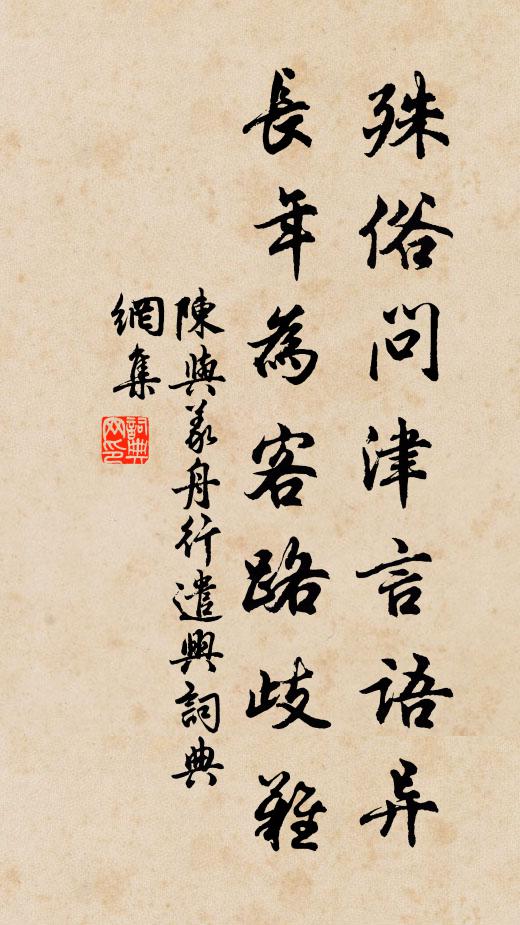 殊俗問津言語异
長年為客路歧難
陳與義舟行遣興詞典
網集
詞典
网印